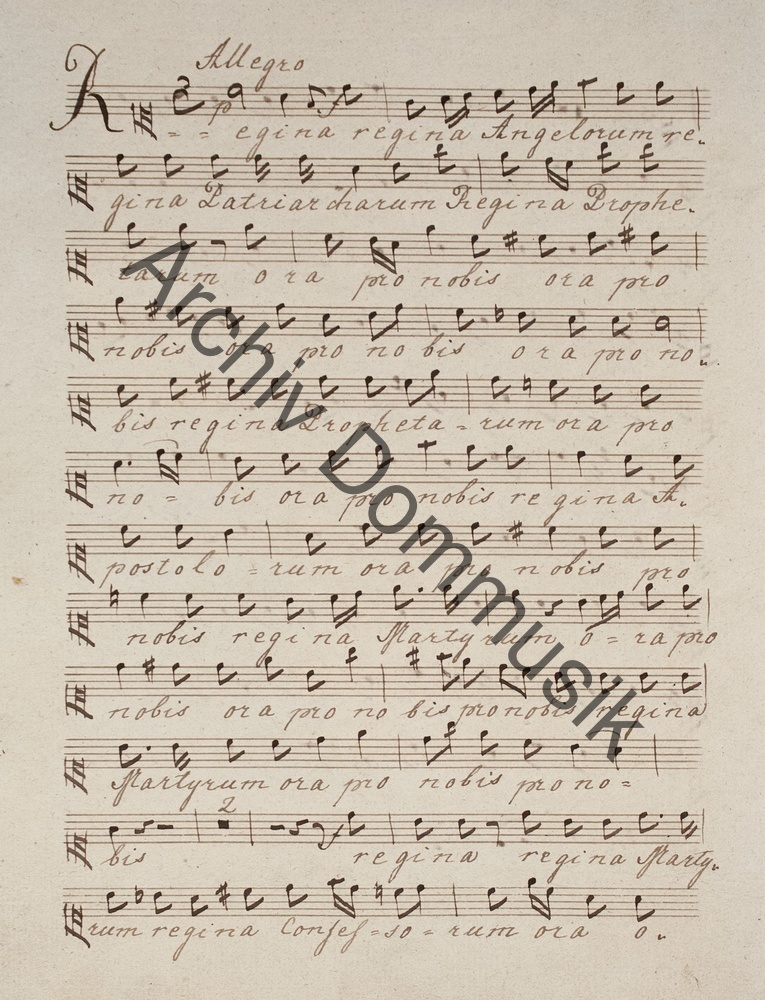 Allegro
R = = egina regina Angelorum re.
gina Patriarcharum Regina Prophe.
tarum ora pro nobis ora pro
nobis ora pro nobis ora pro no.
bis regina Propheta = rum ora pro
no = bis ora pro nobis regina A.
postolo = rum ora pro nobis pro
nobis regina Martyrum o = ra pro
nobis ora pro nobis pro nobis regina
Martyrum ora pro nobis pro no =
2
bis regina regina Marty.
rum regina Confes = so = rum ora o.
Archiv Dommusik